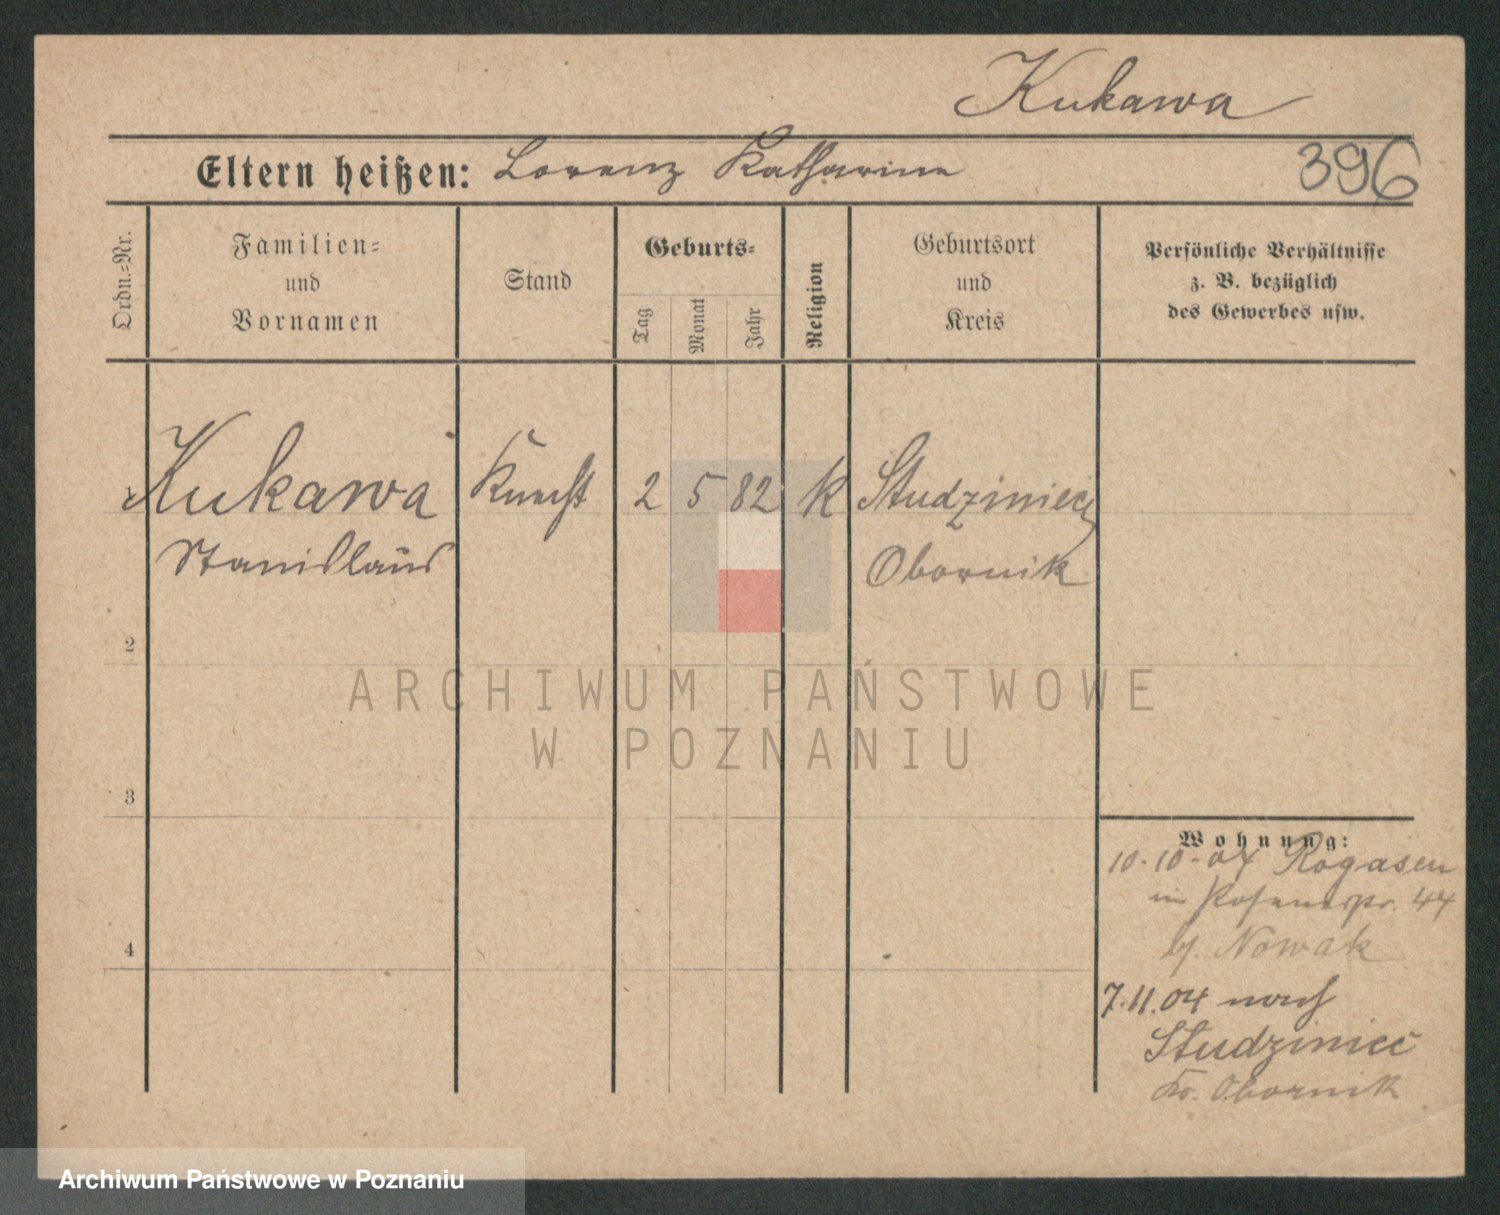 Kukawa
Eltern heißen: Lorenz Katharine
396
Ordn.=Nr.
Familien=
und
Vornamen
Stand
Geburts=
Tag
Monat
Jahr
Religion
Geburtsort
und
Kreis
Persönliche Verhältnisse
z. B. bezüglich
des Gewerbes usw.
Kukawa Knecht 2 5 82 K Studziniec
Stanislaus Obornik
2
ARCHIWUM PAŃSTWOWE
W POZNANIU
3
4
Wohnung:
10.10.04 Rogasen
44
b/. Nowak
7.11.04 nach
Studziniec
Kr. Obornik
Archiwum Państwowe w Poznaniu